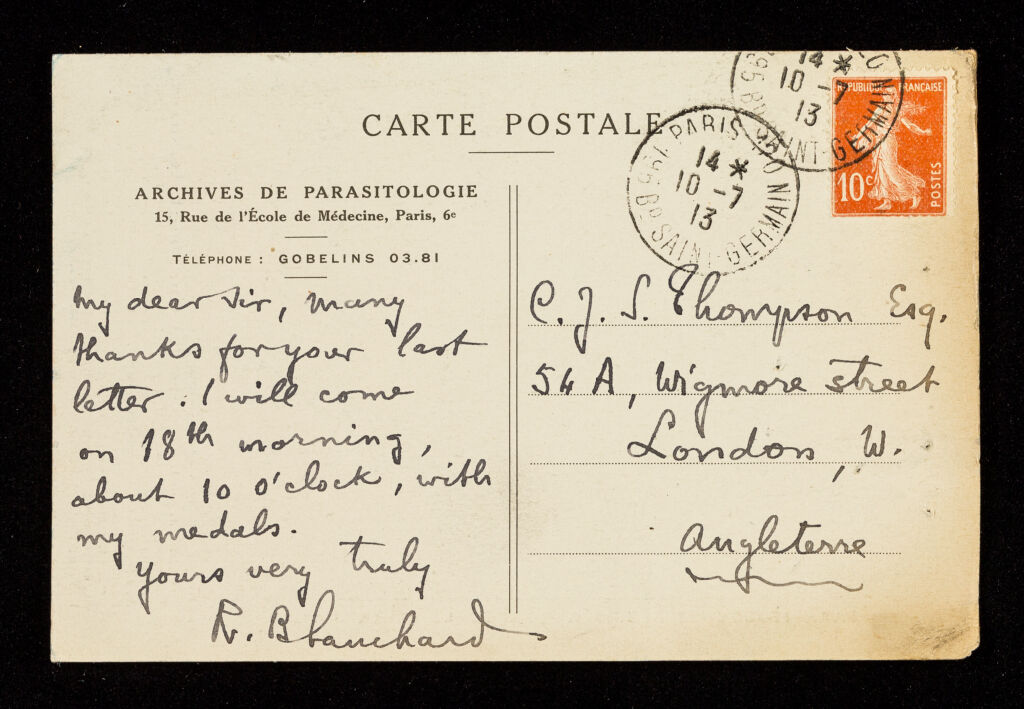 CARTE POSTALE
ARCHIVES DE PARASITOLOGIE
15, Rue de l'École de Médecine, Paris, 6e
TÉLÉPHONE : GOBELINS 03.81
My dear Sir, many
thanks for your last
letter. I will come
on 18th morning,
about 10 o'clock, with
my medals.
Yours very truly
R. Blanchard
PARIS
14 *
10 - 7
13
195 Bd SAINT-GERMAIN
14 *
10 - 7
13
SAINT-GERMAIN
REPUBLIQUE FRANÇAISE
10c
POSTES
C. J. S. Thompson Esq.
54 A, Wigmore street
London, W.
Angleterre